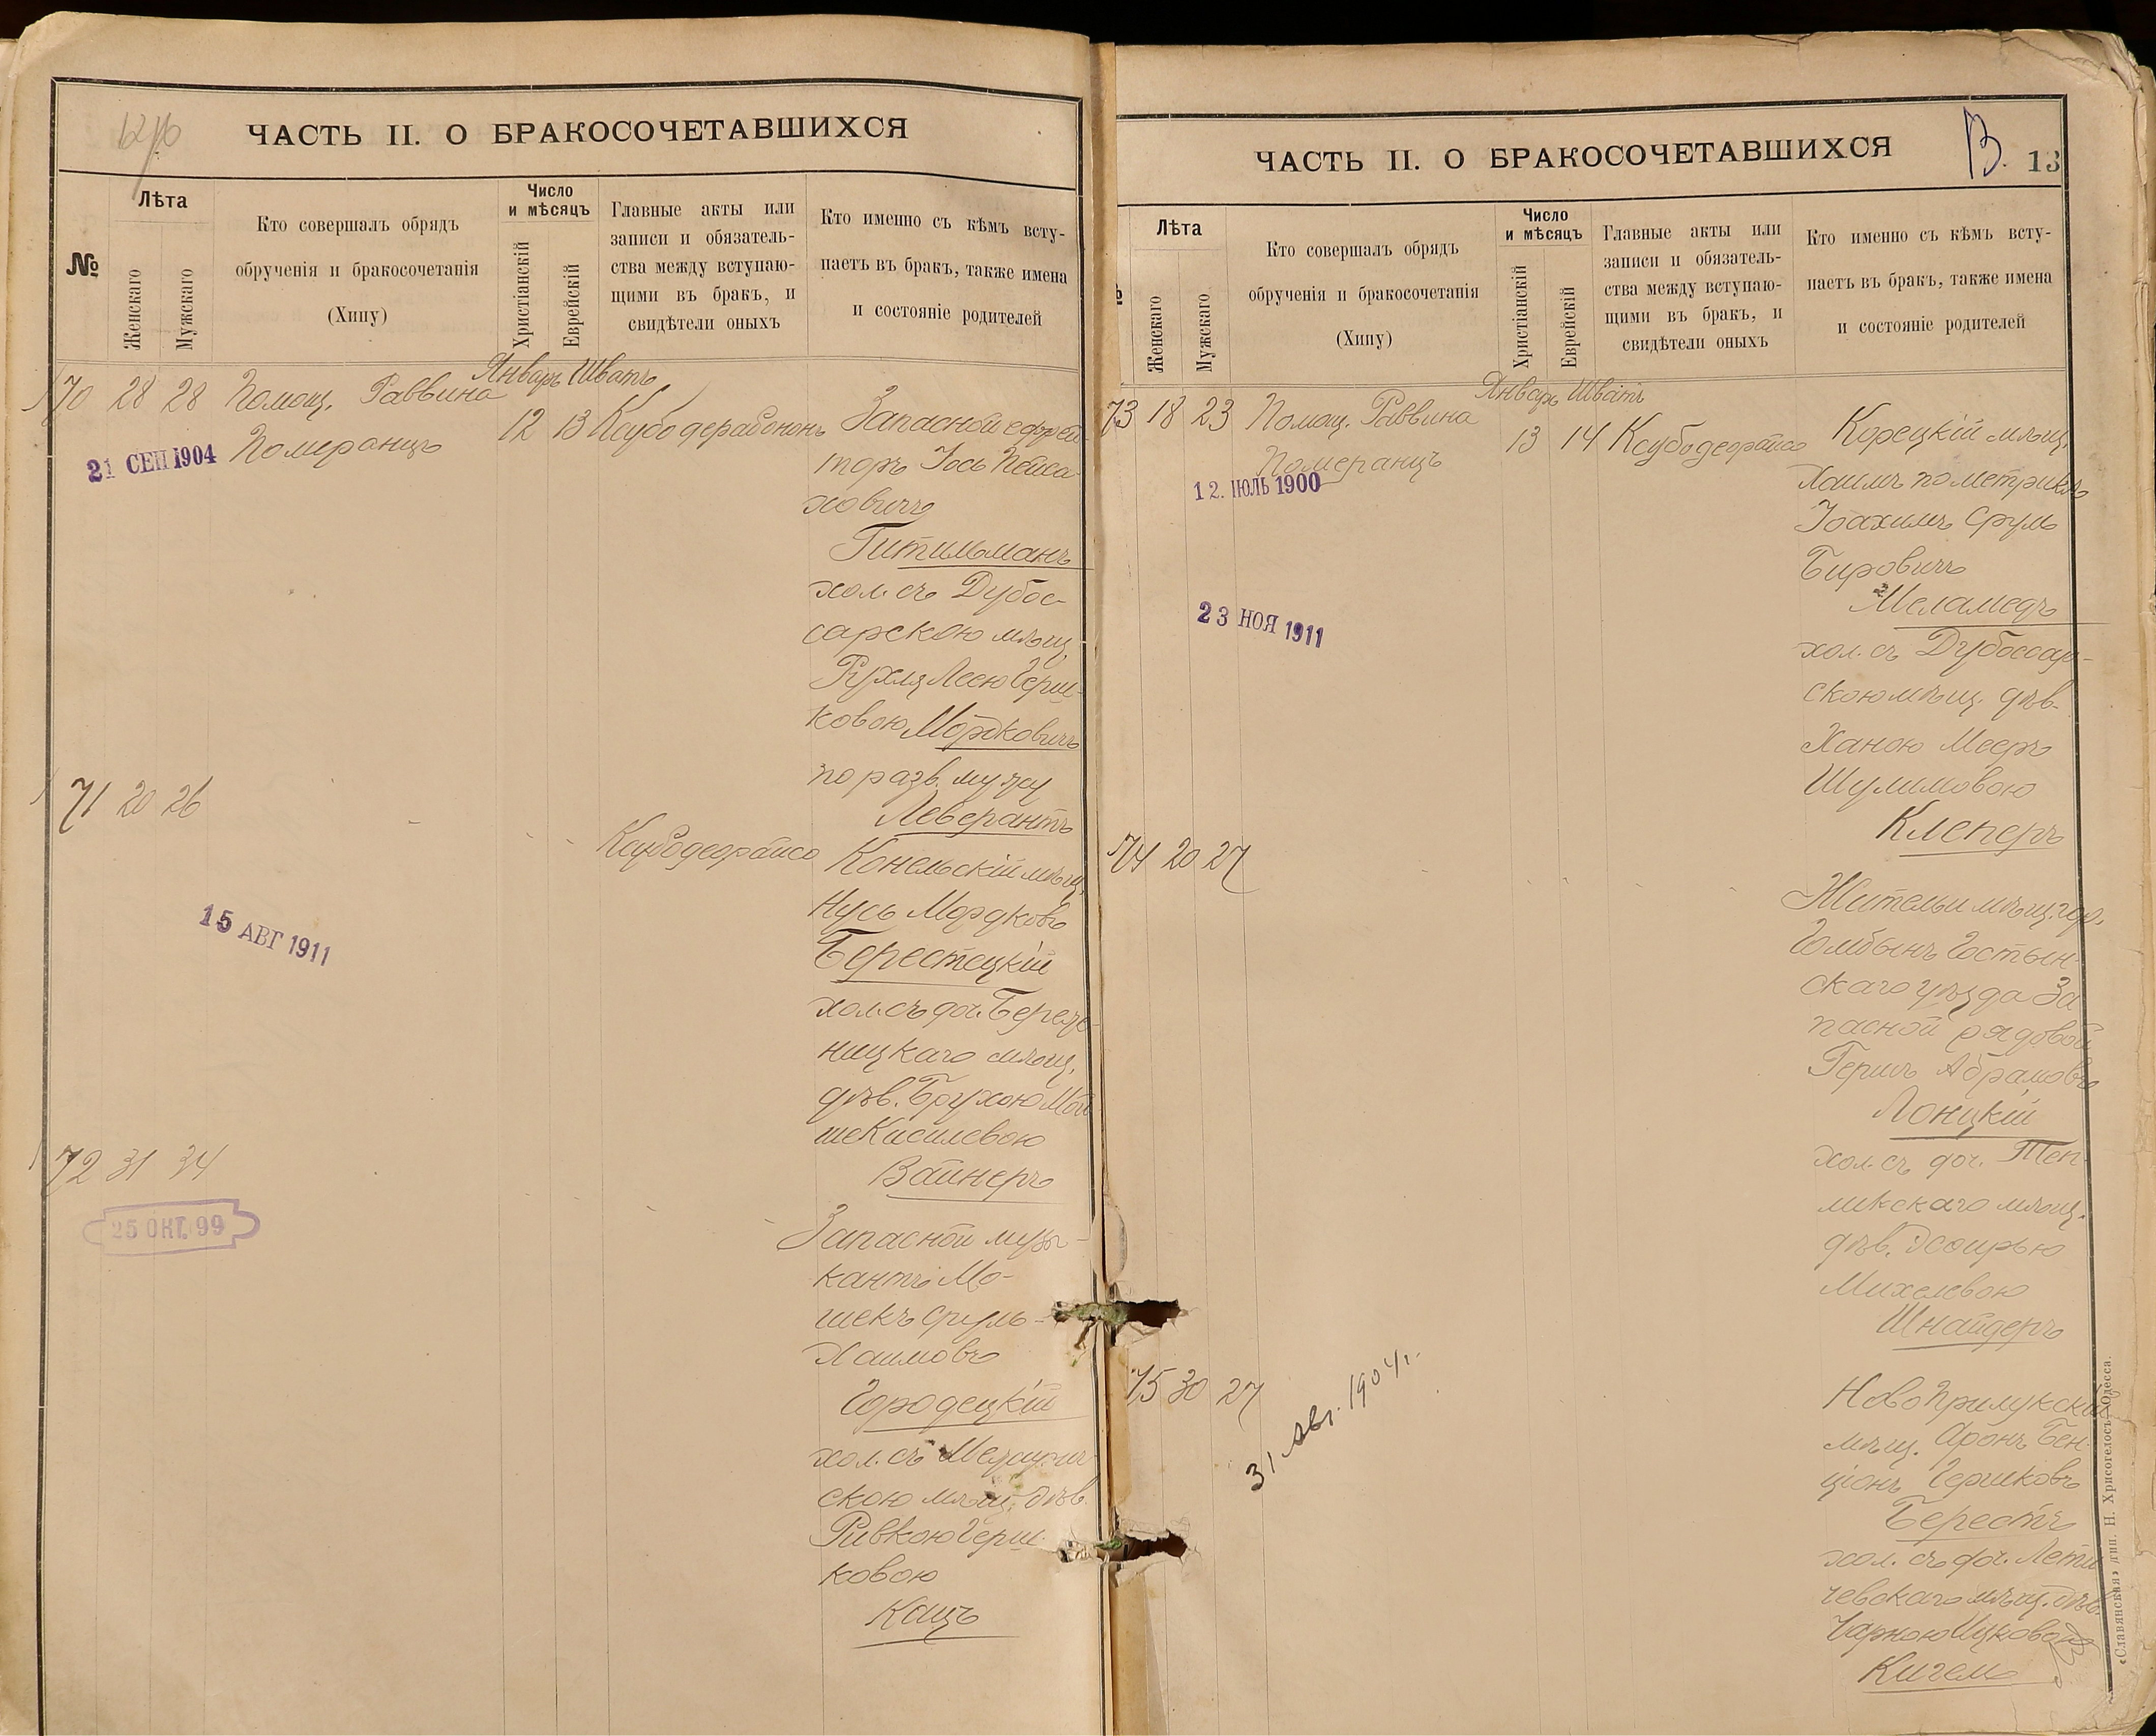 ЧАСТЬ II. О БРАКОСОЧЕТАВШИХСЯ
№
Лѣта
Женскаго
Мужскаго
Кто совершалъ обрядъ
обрученія и бракосочетанія
(Хипу)
Число
и мѣсяцъ
Христіанскій
Еврейскій
Главные акты или
записи и обязатель-
ства между вступаю-
щими въ бракъ, и
свидѣтели оныхъ
Кто именно съ кѣмъ всту-
паетъ въ бракъ, также имена
и состояніе родителей
Январь Шватъ
70 28 28 Помощ. Раввина
Померанцъ
12 13
21 СЕП 1904
Запасной ефрей-
торъ Іось Пейса-
ховичъ
Гительманъ
хол. съ Дубос-
сарскою мѣщ.
Рухля Леею Герш-
ковою Мордковичъ
по разв. мужу
Леверантъ
71 20 26
Ксубодеорайсо
15 АВГ 1911
Конельскій мѣщ.
Нусь Мордковъ
Берестецкій
хол. съ доч. Берез-
ницкаго мѣщ.
дѣв. Брухою Мой-
шеКисилевою
Вайнеръ
72 31 34
25 ОКТ. 99
Запасной музы-
кантъ Мо-
шекъ Сруль-
Хаимовъ
Городецкій
хол. съ
скою мѣщ. дѣв.
Ривкою Герш-
ковою
Кацъ
ЧАСТЬ II. О БРАКОСОЧЕТАВШИХСЯ
13. 13
Лѣта
Женскаго
Мужскаго
Кто совершалъ обрядъ
обрученія и бракосочетанія
(Хипу)
Число
и мѣсяцъ
Христіанскій
Еврейскій
Главные акты или
записи и обязатель-
ства между вступаю-
щими въ бракъ, и
свидѣтели оныхъ
Кто именно съ кѣмъ всту-
паетъ въ бракъ, также имена
и состояніе родителей
Январь Шватъ
73 18 23 Помощ. Раввина
Померанцъ
13 14 Ксубодеорайсо
12. ІЮЛЬ 1900
23 НОЯ 1911
Корецкій мѣщ.
Хаимъ по метрикѣ
Іоахимъ Сруль
Бировичъ
Меламедъ
хол. съ Дубоссар-
скою мѣщ. дѣв.
Ханою Мееръ
Шулимовою
Клеперъ
74 20 27
Жительи мѣщ. гор.
Гомбынъ Гостын-
скаго уѣзда За-
пасной рядовой
Гершъ Абрамовъ
Лонцкій
хол. съ доч. Теп-
ликскаго мѣщ.
дѣв. Эсфирью
Михелевою
Шнайдеръ
75 30 27
31 авг. 1904 г.
НовоПрилукскій
мѣщ. Аронъ Бен-
ціонъ Гершковъ
Берестъ
хол. съ доч. Лети-
чевскаго мѣщ. дѣв.
Чарною Ицковою
Кигель
«Славянская» тип. Н. Хрисогелосъ, Одесса.